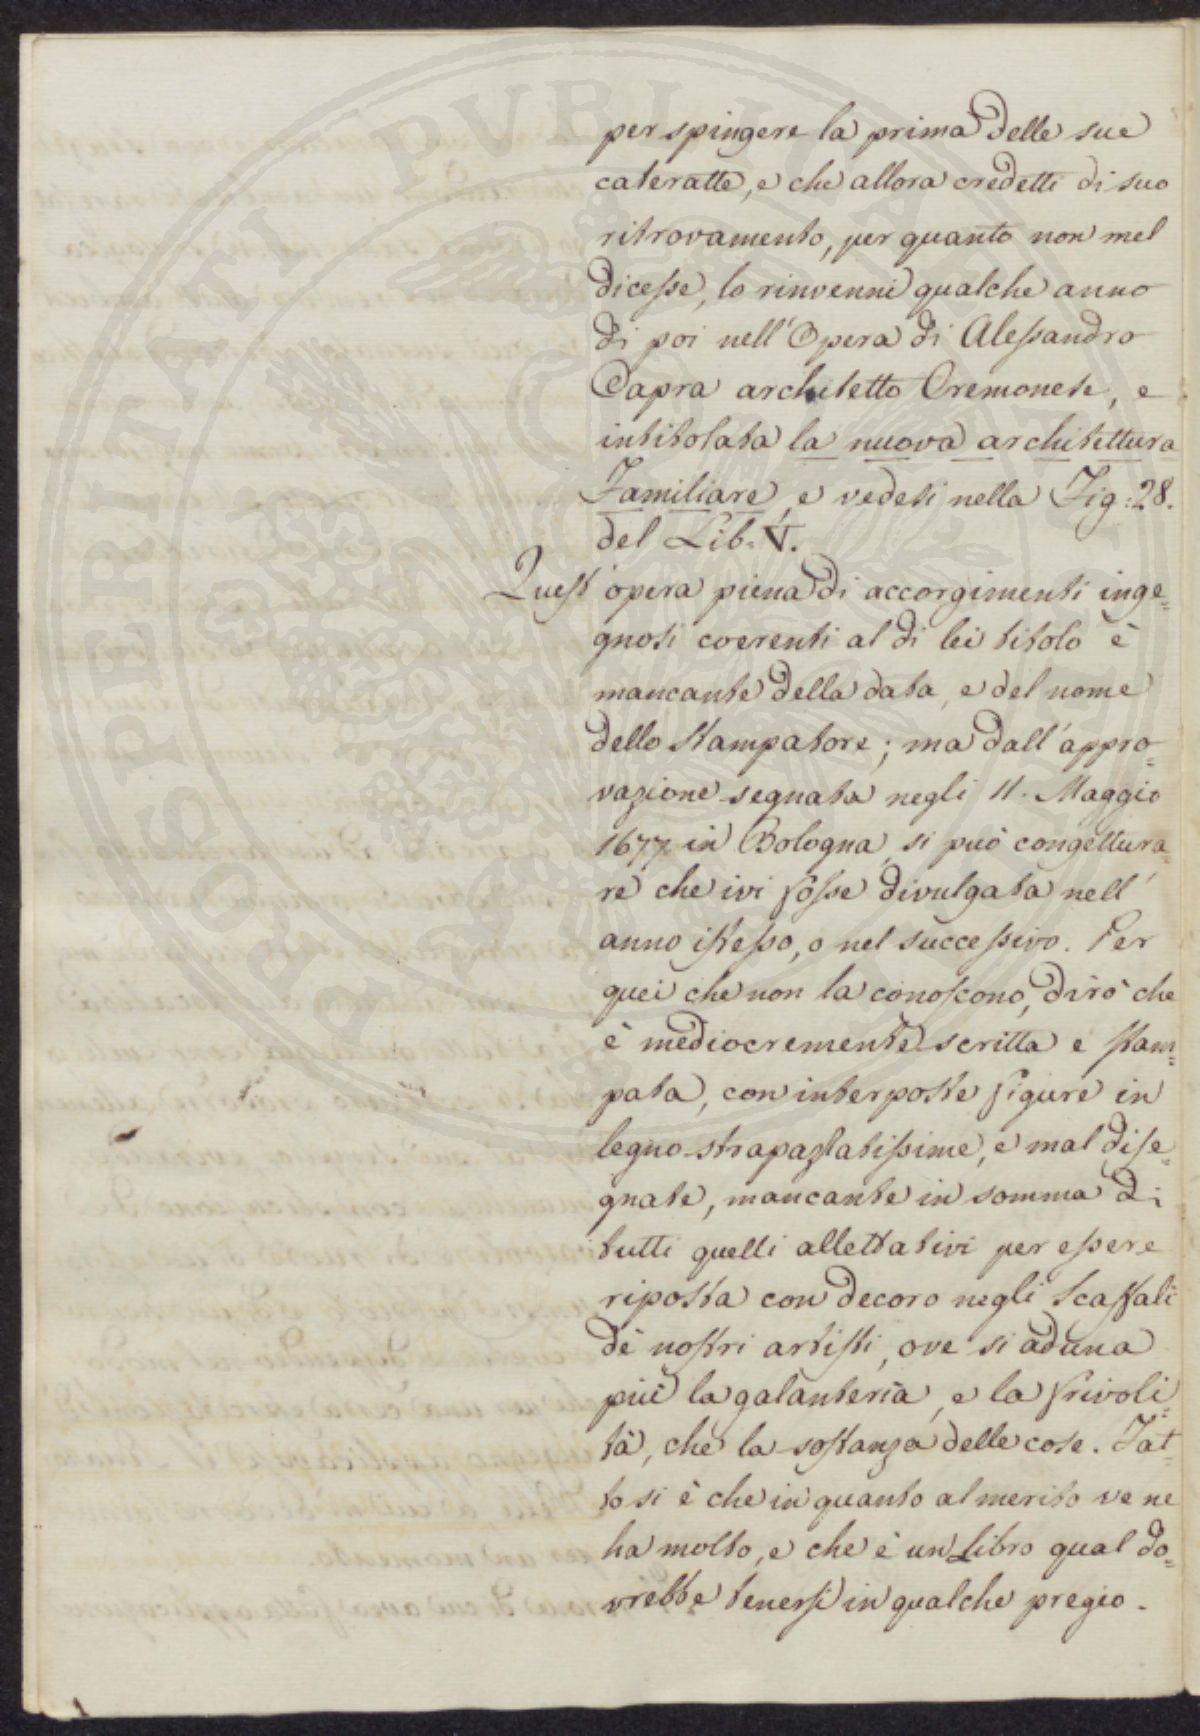 per spingere la prima delle sue
cateratte, e che allora credetti di suo
ritrovamento, per quanto non mel
dicesse, lo rinvenni qualche anno
di poi nell'Opera di Alessandro
Capra architetto Cremonese, e
intitolata la nuova architettura
Familiare, e vedesi nella Fig: 28.
del Lib. V.
Quest'opera piena di accorgimenti inge=
gnosi coerenti al di lei titolo è
mancante della data, e del nome
dello Stampatore; ma dall'appro=
vazione segnata negli 11. Maggio
1677. in Bologna, si può congettura=
re che ivi fosse divulgata nell'
anno istesso, o nel successivo. Per
quei che non la conoscono, dirò che
è mediocremente scritta e stam=
pata, con interposte figure in
legno strapazzatissime, e mal dise=
gnate, mancante in somma di
tutti quelli allettativi per essere
riposta con decoro negli Scaffali
de' nostri artisti, ove si aduna
più la galanteria, e la frivoli=
tà, che la sostanza delle cose. Fat=
to si è che in quanto al merito ve ne
ha molto, e che è un Libro qual do=
vrebbe tenersi in qualche pregio.
PROSPERITATI PUBLICAE AUGENDAE